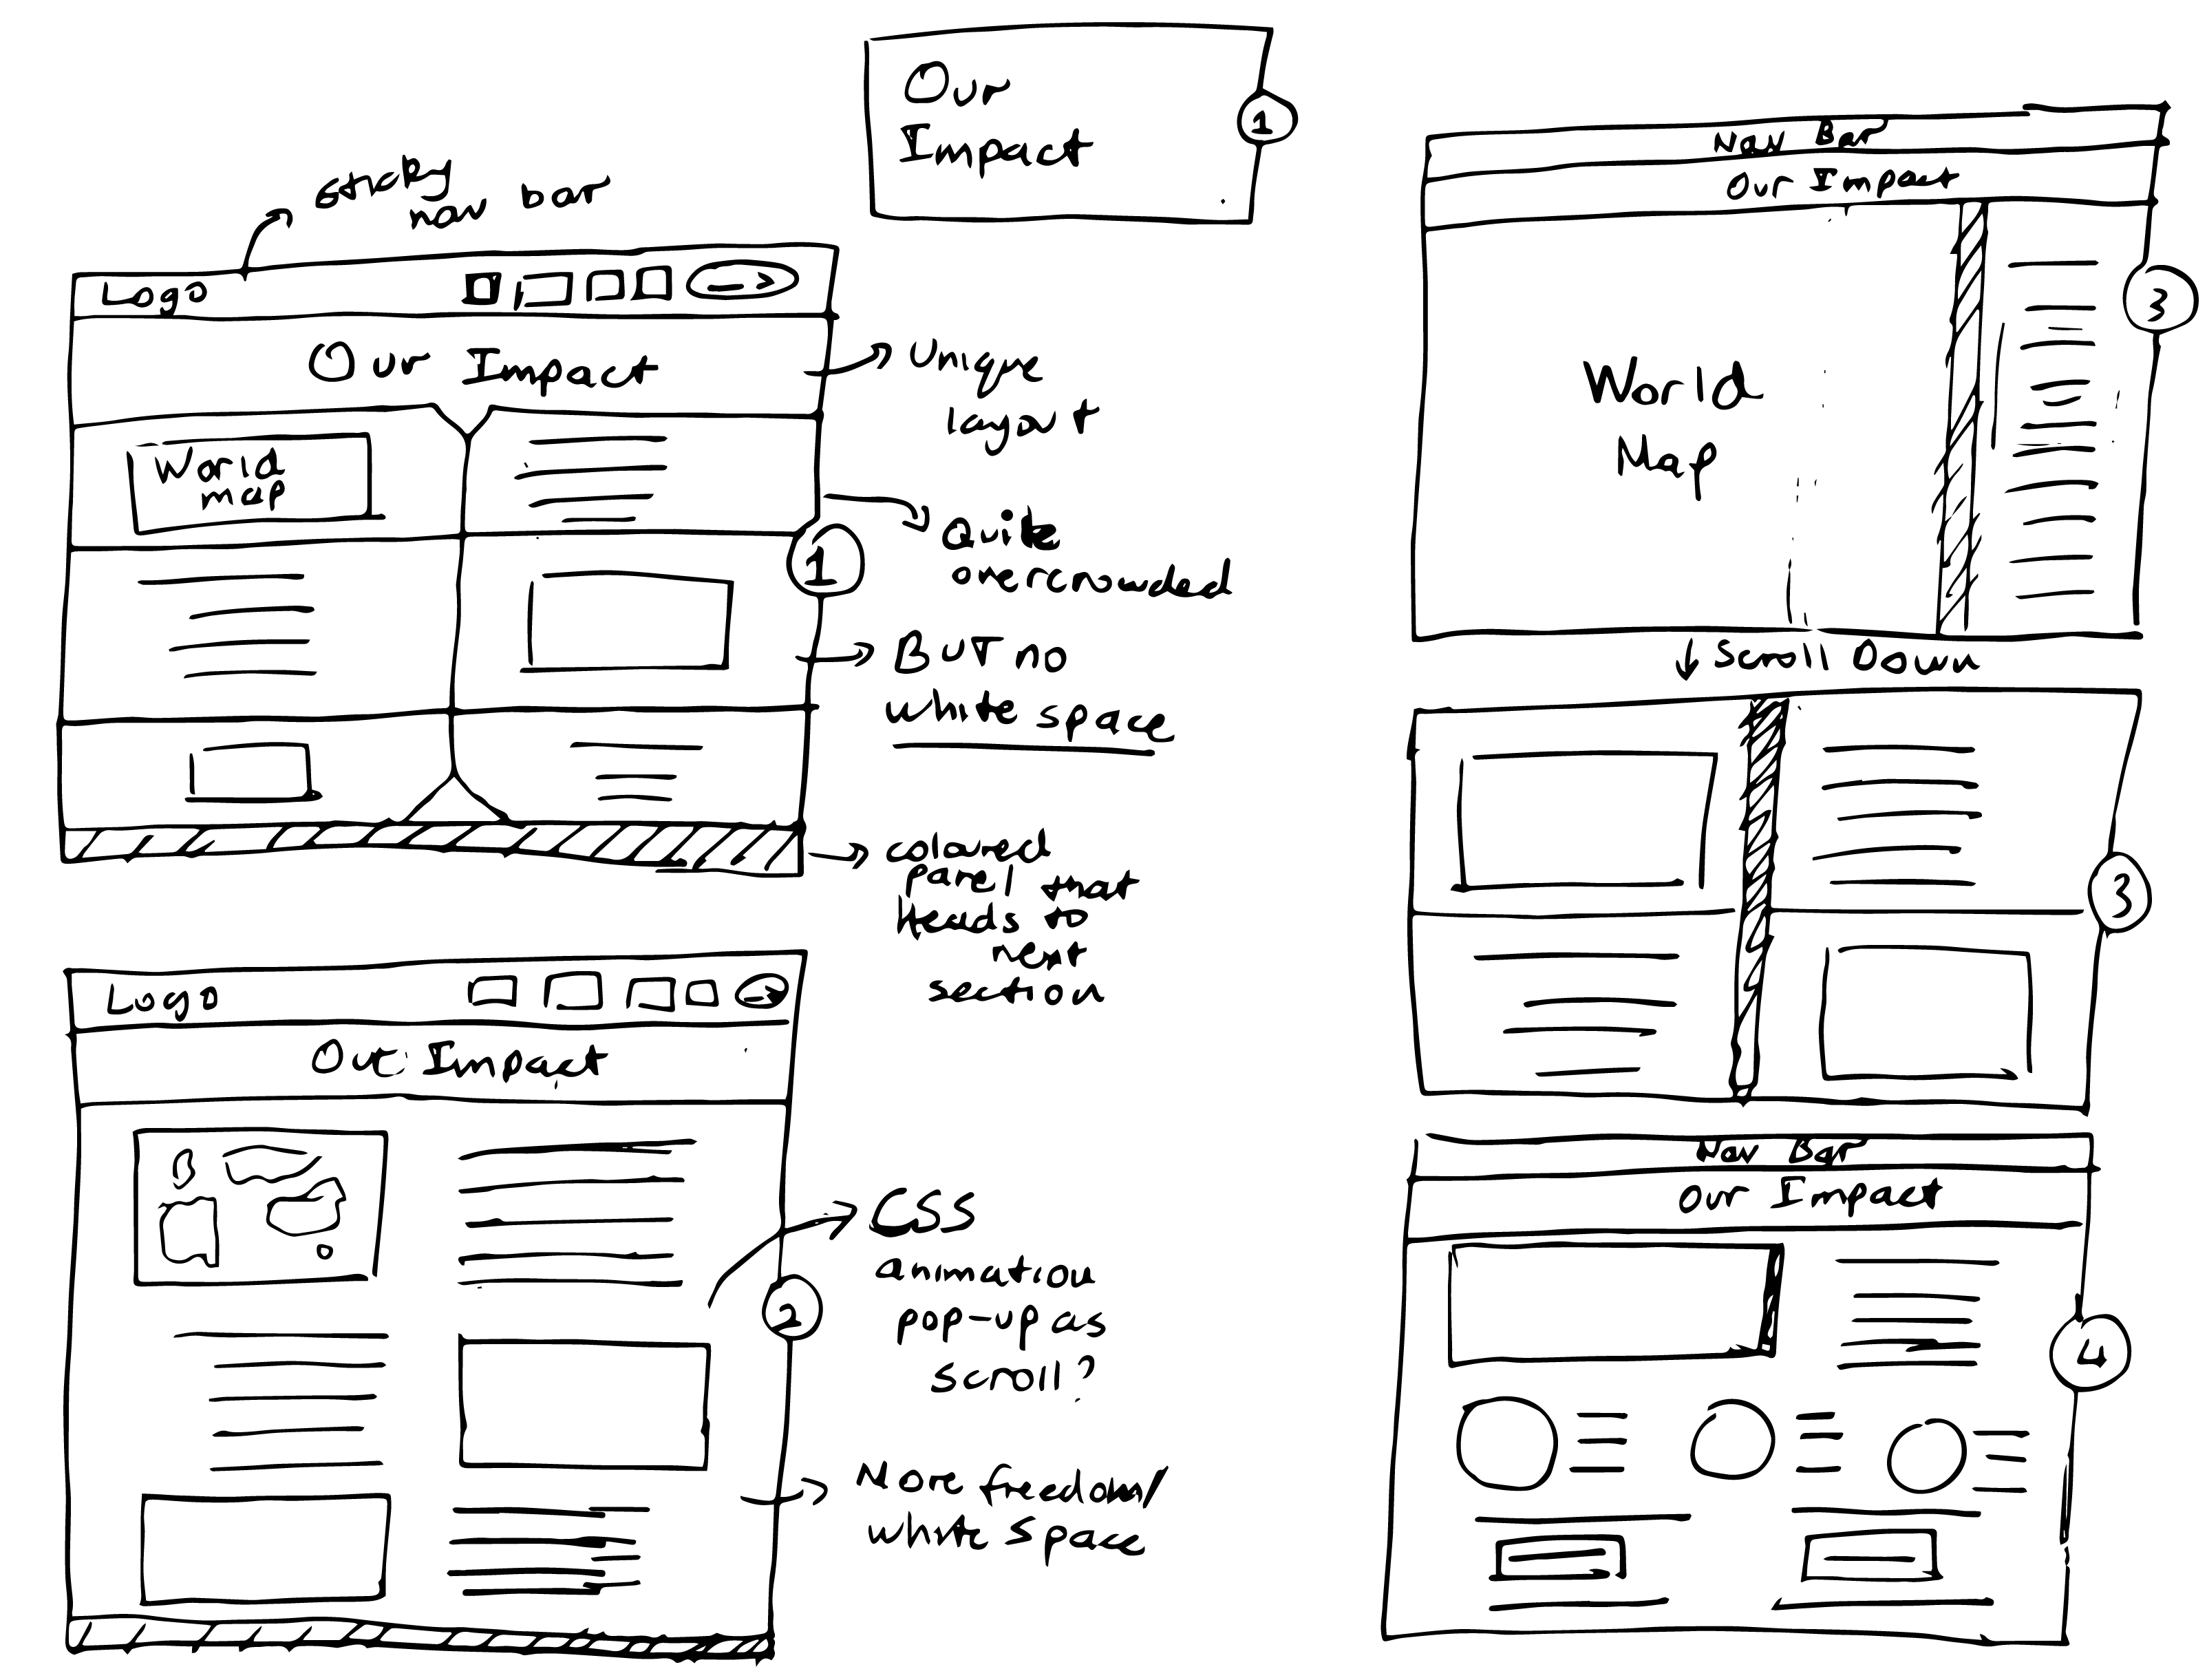 Our
Impact
1
sticky
nav bar
Logo
Our Impact
World
map
1
Unique
layout
Quite
overcrowded
BUT no
white space
coloured
panel that
leads to
next
section
Logo
Our Impact
2
CSS
animation
pop-up as
scroll?
More freedom/
white space
Nav Bar
Our Impact
World
Map
3
Scroll Down
3
Nav Bar
Our Impact
4